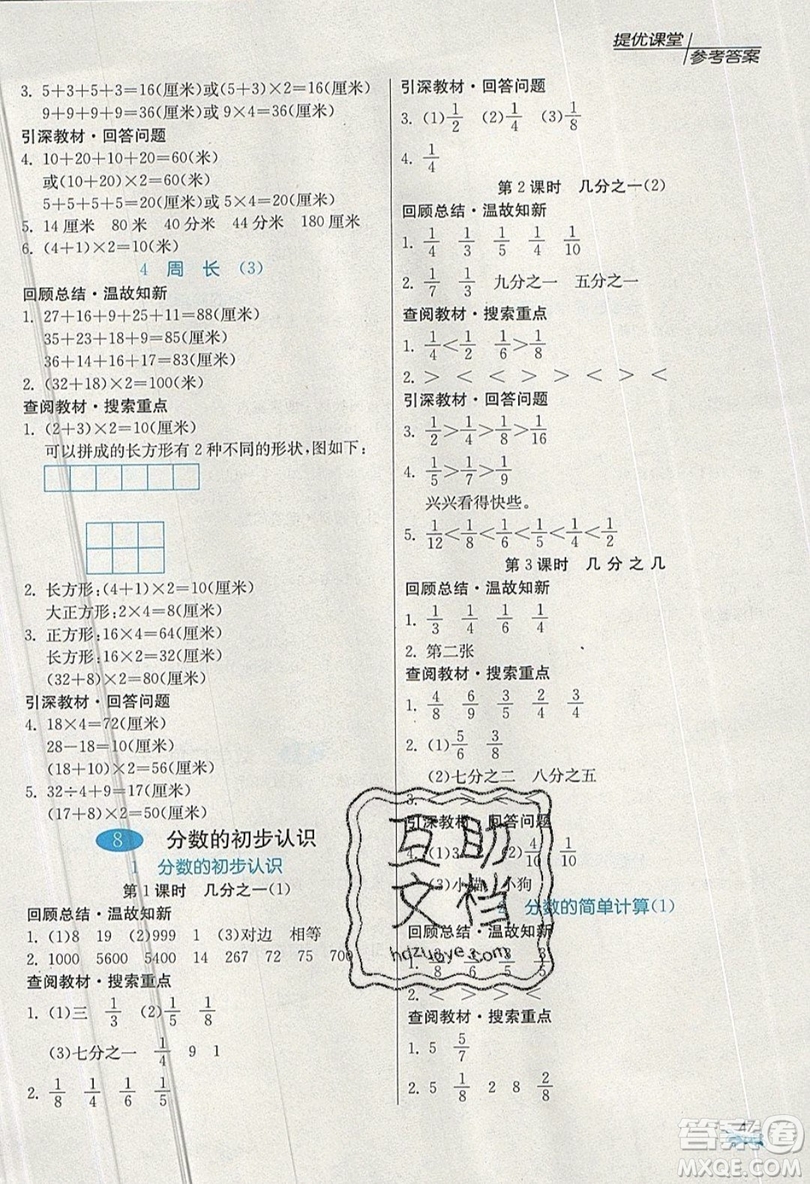 提优课堂
参考答案
3. 5+3+5+3=16(厘米)或(5+3)×2=16(厘米)
9+9+9+9=36(厘米)或 9×4=36(厘米)
引深教材·回答问题
4. 10+20+10+20=60(米)
或(10+20)×2=60(米)
5+5+5+5=20(米)或 5×4=20(米)
5. 14 厘米 80 米 40 分米 44 分米 180 厘米
6. (4+1)×2=10(厘米)
4 周 长 (3)
回顾总结·温故知新
1. 27+16+9+25+11=88(厘米)
35+23+18+9=85(厘米)
36+14+16+21+30=117(厘米)
2. (32+18)×2=100(米)
查阅教材·搜索重点
1. (2+3)×2=10(厘米)
可以拼成的长方形有 2 种不同的形状,图如下:
2. 长方形:(4+1)×2=10(厘米)
大正方形:4×2=8(厘米)
3. 正方形:16×4=64(厘米)
长方形:16×2=32(厘米)
(32+8)×2=80(厘米)
引深教材·回答问题
4. 18×4=72(厘米)
28-18=10(厘米)
(18+10)×2=56(厘米)
5. 32÷4+9=17(厘米)
(17+8)×2=50(厘米)
8 分数的初步认识
1 分数的初步认识
第 1 课时 几分之一(1)
回顾总结·温故知新
1. (1)8 19 (2)999 1 (3)对边 相等
2. 1000 5600 5400 14 267 72 75 700
查阅教材·搜索重点
1. (1)三 1/3 (2)1/5 1/8
(3)七分之一 1/4 9 1
2. 1/8 1/4 1/6 1/5
引深教材·回答问题
3. (1)1/2 (2)1/4 (3)1/8
4. 1/4
第 2 课时 几分之一(2)
回顾总结·温故知新
1. 1/4 1/3 1/5 1/6 1/10
2. 1/7 1/3 九分之一 五分之一
查阅教材·搜索重点
1. 1/4<1/2 1/6>1/8
2. > < > < > > <
引深教材·回答问题
3. 1/2>1/4>1/8>1/16
4. 1/5>1/7>1/9
兴兴看得快些。
5. 1/12<1/8<1/6<1/5<1/4<1/2
第 3 课时 几 分 之 几
回顾总结·温故知新
1. 1/3 1/4 1/6 1/5
2. 第二张
查阅教材·搜索重点
1. 4/8 6/9 3/5 2/4 3/6
2. (1)5/6 3/8
(2)七分之二 八分之五
3.
引深教材·回答问题
4.
(3)小猫 小狗
分数的简单计算(1)
回顾总结·温故知新
2. < > < > >
查阅教材·搜索重点
1. 5 5/7
2. 5 1/8 2 8 2/8
互助
文档
hdzuoye.com
47
答案圈
MXQE.COM